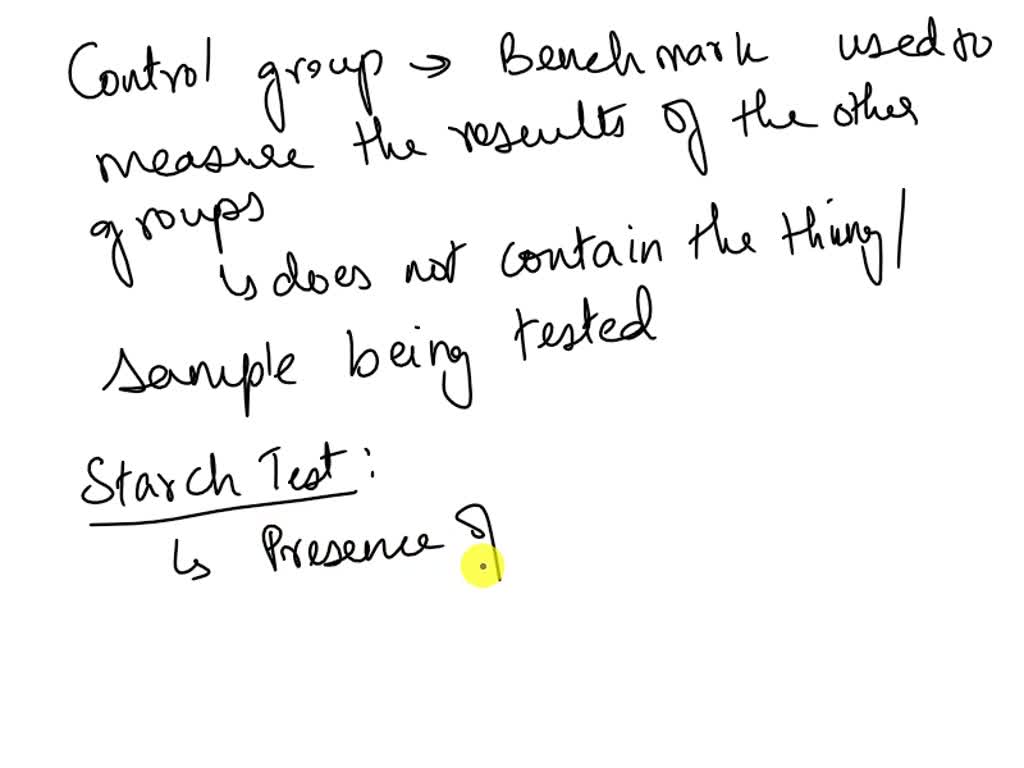 Control group → Benchmark used to
measure the results of the other
groups
↳ does not contain the thing/
sample being tested
Starch Test:
↳ Presence of